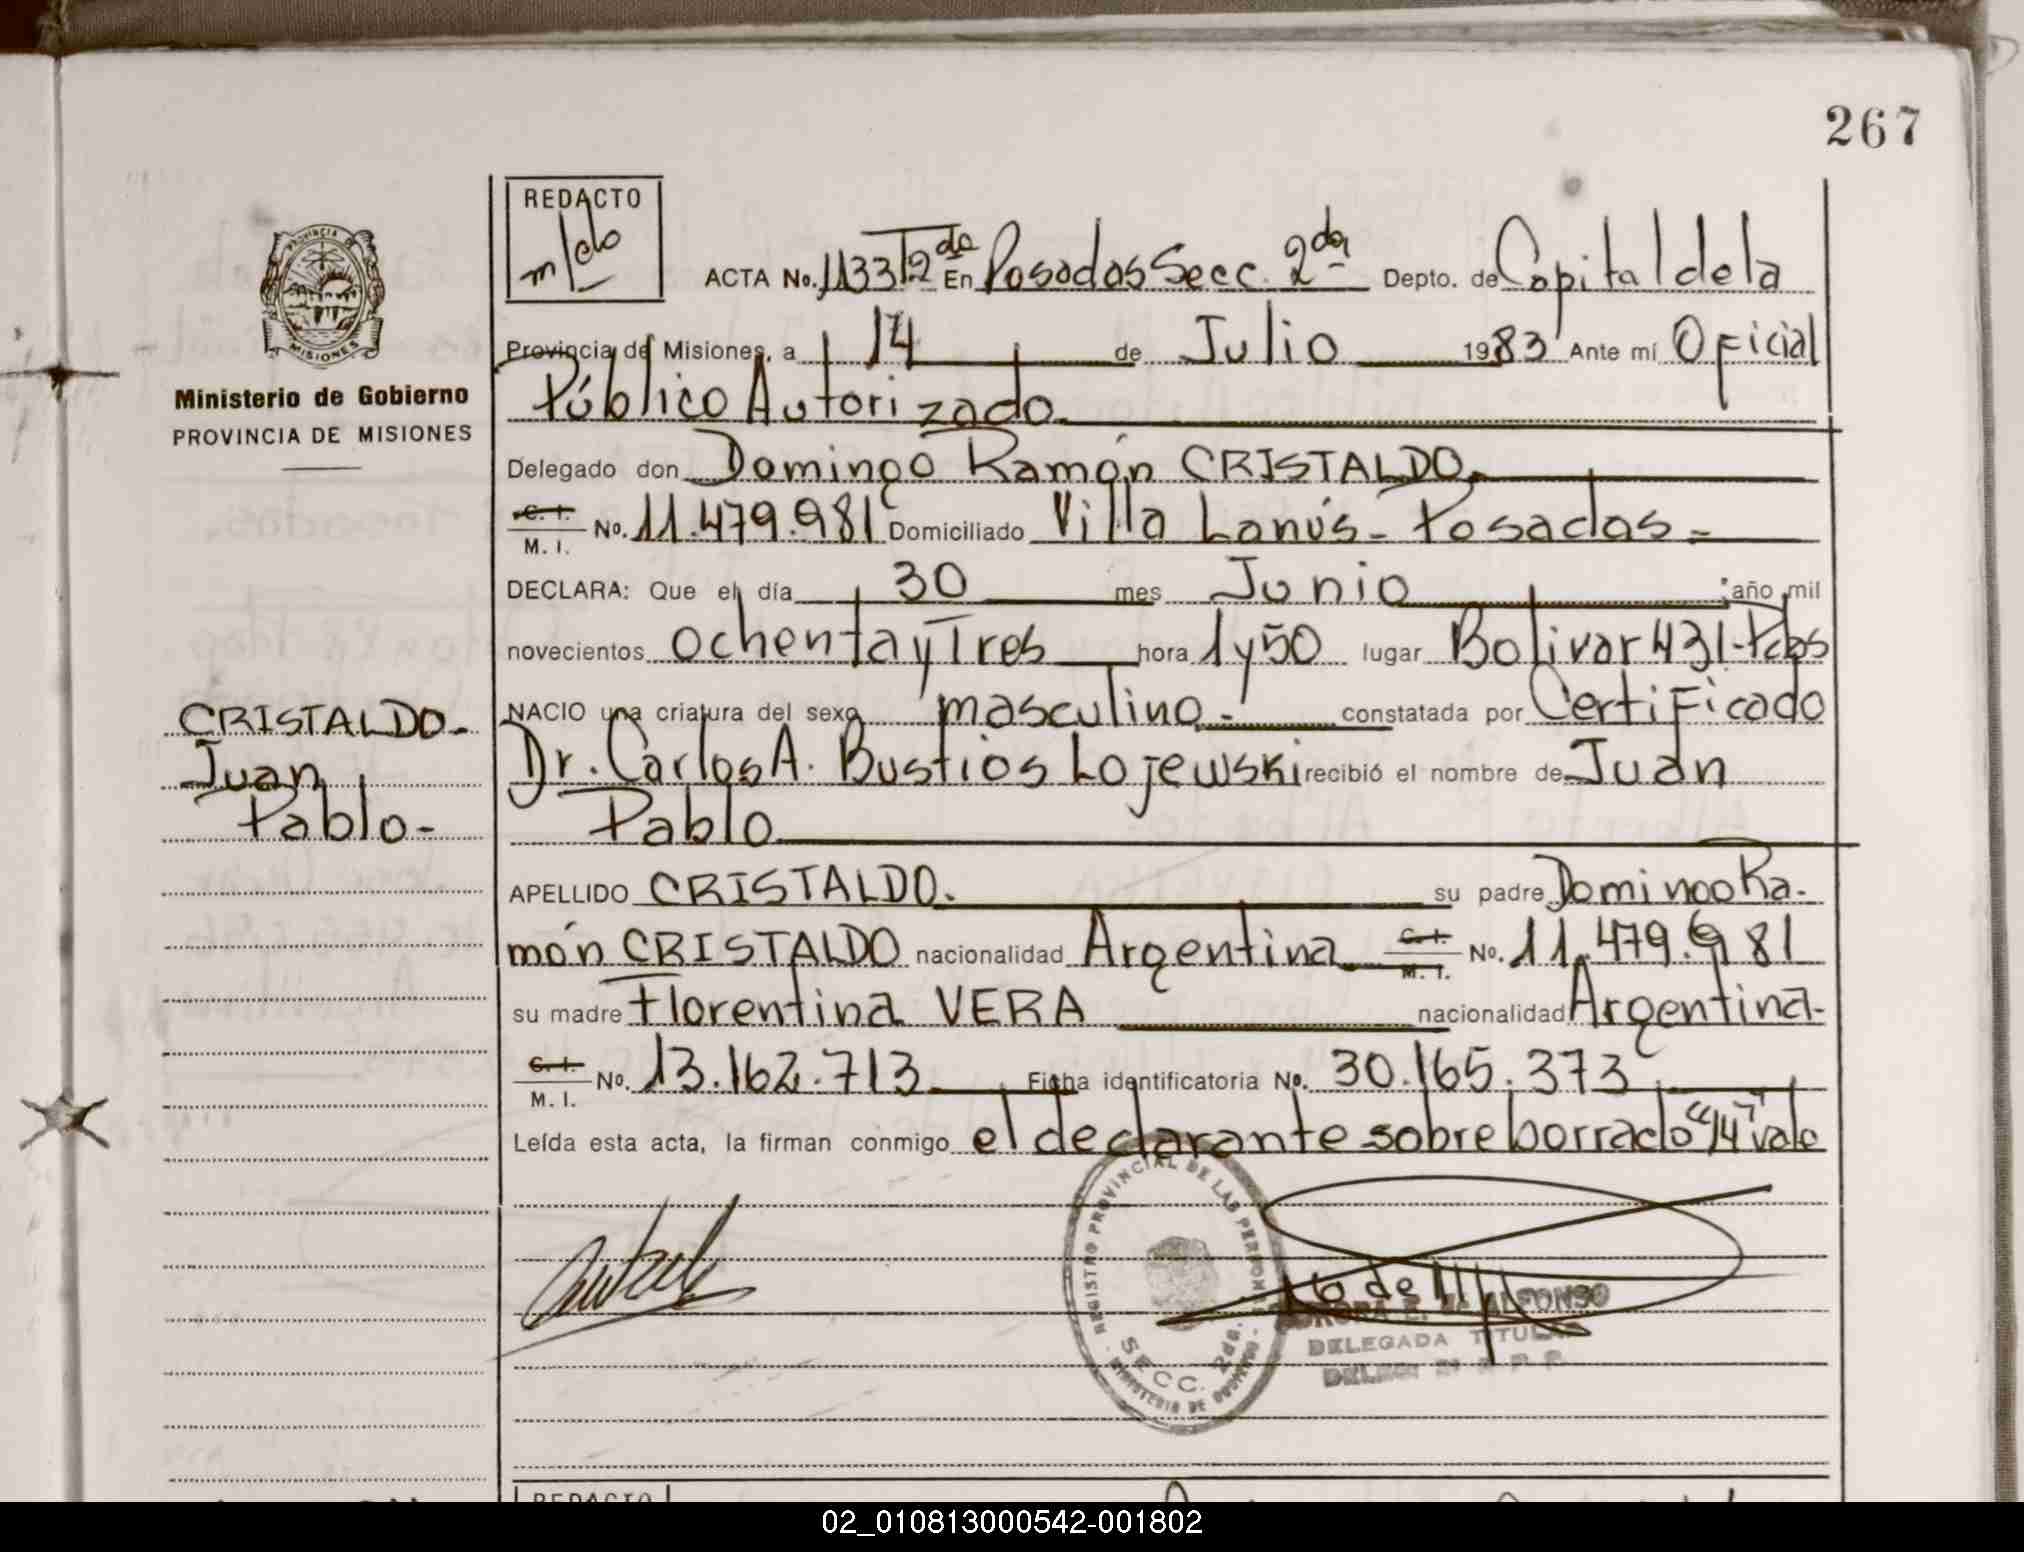 267
REDACTO
ACTA No. 1133 T 2do En Posadas Secc. 2da Depto. de Capital de la
Provincia de Misiones, a 14 de Julio 1983 Ante mí Oficial
Público Autorizado
PROVINCIA DE
MISIONES
Ministerio de Gobierno
PROVINCIA DE MISIONES
Delegado don Domingo Ramón CRISTALDO.
C. I.
M. I. No. 11.479.981 Domiciliado Villa Lanús - Posadas -
DECLARA: Que el día 30 mes Junio año mil
novecientos ochenta y Tres hora 1 y 50 lugar Bolivar 431 - Pdas
NACIO una criatura del sexo masculino.- constatada por Certificado
Dr. Carlos A. Bustios Lojewski recibió el nombre de Juan
Pablo
CRISTALDO.-
Juan
Pablo-
APELLIDO CRISTALDO. su padre Domingo Ra-
món CRISTALDO nacionalidad Argentina C. I.
M. I. No. 11.479.981
su madre Florentina VERA nacionalidad Argentina-
C. I.
M. I. No. 13.162.713 Ficha identificatoria No. 30.165.373
Leída esta acta, la firman conmigo el declarante sobre borrado "14" vale
REGISTRO PROVINCIAL DE LAS PERSONAS
SECC. 2da.
MINISTERIO DE GOBIERNO
ALFONSO
DELEGADA TITULAR
REDACTO
02_010813000542-001802